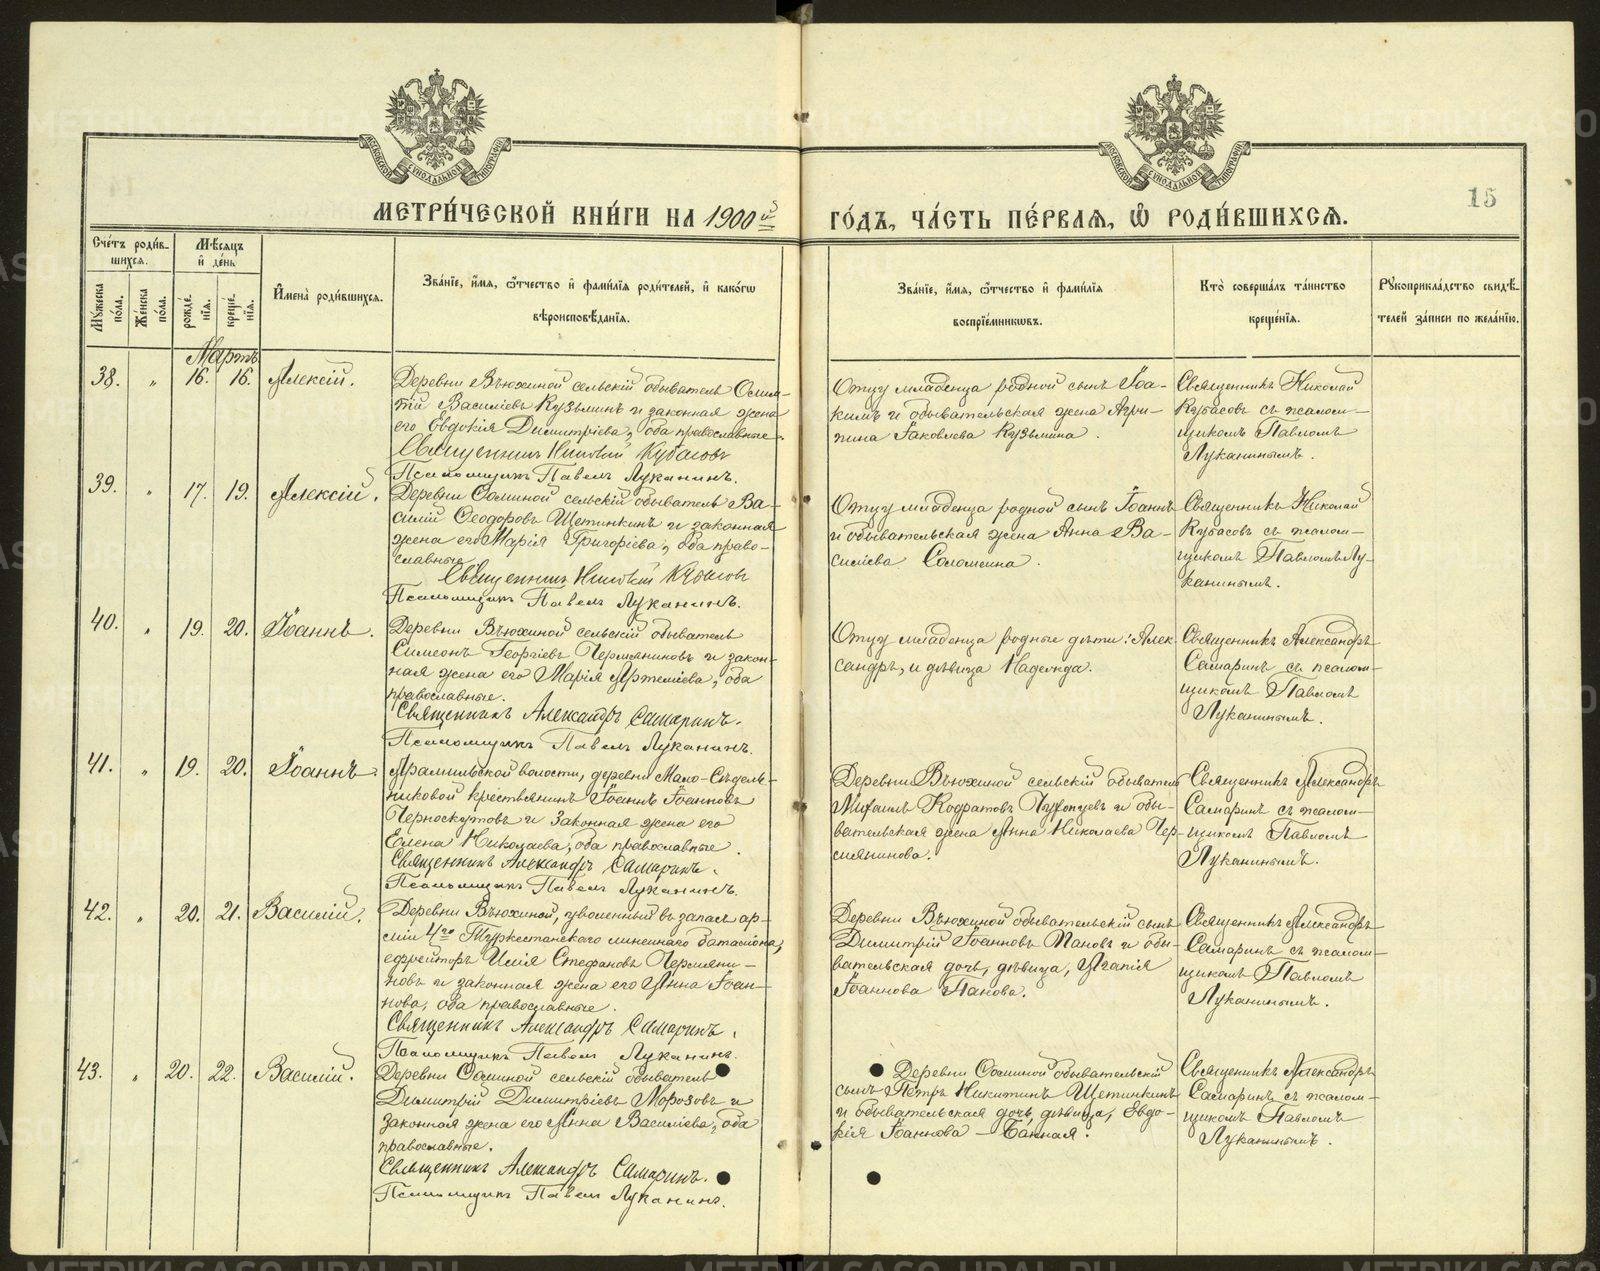 МОСКОВСКОЙ СУНОДАЛЬНОЙ ТИПОГРАФІИ
МОСКОВСКОЙ СУНОДАЛЬНОЙ ТИПОГРАФІИ
15
МЕТРИ́ЧЕСКОЙ КНИ́ГИ НА 1900й ГО́ДЪ, ЧА́СТЬ ПЕ́РВАЯ, Ѡ РОДИ́ВШИХСЯ.
Сче́тъ роди́в-
шихся.
Мꙋжеска по́ла.
Же́нска по́ла.
Мѣ́сяцъ
и де́нь
рожде́нїя.
креще́нїя.
Имена̀ роди́вшихся.
Зва́нїе, и́мя, ѻ҆́тчество и фами́лїя роди́телей, и како́гѡ
вѣроисповѣ́данїя.
Зва́нїе, и́мя, ѻ҆́тчество и фами́лїя
воспрїе́мникѡвъ.
Кто̀ соверша́лъ та́инство
креще́нїя.
Рꙋкоприкла́дство свидѣ́-
телей за́писи по жела́нїю.
Мартъ
38. „ 16. 16. Алексій.
Деревни Вьюхиной сельскій обыватель
Василіевъ Кузьминъ и законная жена
его Евдокія Димитріева, оба православные.
Священникъ Николай Кубасовъ
Псаломщикъ Павелъ Луканинъ.
Отцу младенца родной сынъ Іоа-
кимъ и обывательская жена Агри-
пина Іаковлева Кузьмина.
Священникъ Николай
Кубасовъ съ псалом-
щикомъ Павломъ
Луканинымъ.
39. „ 17. 19. Алексій.
Деревни Соминой сельскій обыватель Ва-
силій Ѳеодоровъ Щетинкинъ и законная
жена его Марія Григоріева, оба право-
славные.
Священникъ Николай Кубасовъ
Псаломщикъ Павелъ Луканинъ.
Отцу младенца родной сынъ Іоаннъ
и обывательская жена Анна Ва-
силіева Соломеина.
Священникъ Николай
Кубасовъ съ псалом-
щикомъ Павломъ Лу-
канинымъ.
40. „ 19. 20. Іоаннъ.
Деревни Вьюхиной сельскій обыватель
Симеонъ Георгіевъ Чермяниновъ и закон-
ная жена его Марія Артеміева, оба
православные.
Священникъ Александръ Самаринъ.
Псаломщикъ Павелъ Луканинъ.
Отцу младенца родные дѣти: Алек
сандръ, и дѣвица Надежда.
Священникъ Александръ
Самаринъ съ псалом-
щикомъ Павломъ
Луканинымъ.
41. „ 19. 20. Іоаннъ.
Арамильской волости, деревни Мало-Сѣдель-
никовой крестьянинъ Іоаннъ Іоанновъ
Черноскутовъ и законная жена его
Елена Николаева, оба православные.
Священникъ Александръ Самаринъ.
Псаломщикъ Павелъ Луканинъ.
Деревни Вьюхиной сельскій обыватель
Михаилъ Кодратовъ и обы-
вательская жена Анна Николаева Чер-
мянинова.
Священникъ Александръ
Самаринъ съ псалом-
щикомъ Павломъ
Луканинымъ.
42. „ 20. 21. Василій.
Деревни Вьюхиной, уволенный въ запасъ ар-
міи 4го Туркестанскаго линейнаго баталіона,
ефрейторъ Илія Стефановъ Чермяни-
новъ и законная жена его Анна Іоан-
нова, оба православные.
Священникъ Александръ Самаринъ.
Псаломщикъ Павелъ Луканинъ.
Деревни Вьюхиной обывательскій сынъ
Димитрій Іоанновъ Пановъ и обы-
вательская дочь, дѣвица, Агапія
Іоаннова Панова.
Священникъ Александръ
Самаринъ съ псалом-
щикомъ Павломъ
Луканинымъ.
43. „ 20. 22. Василій.
Деревни Соминой сельскій обыватель
Димитрій Димитріевъ Морозовъ и
законная жена его Анна Василіева, оба
православные.
Священникъ Александръ Самаринъ.
Псаломщикъ Павелъ Луканинъ.
Деревни Соминой обывательскій
сынъ Петръ Никитинъ Щетинкинъ
и обывательская дочь, дѣвица, Евдо-
кія Іоаннова Банная.
Священникъ Александръ
Самаринъ съ псалом-
щикомъ Павломъ
Луканинымъ.